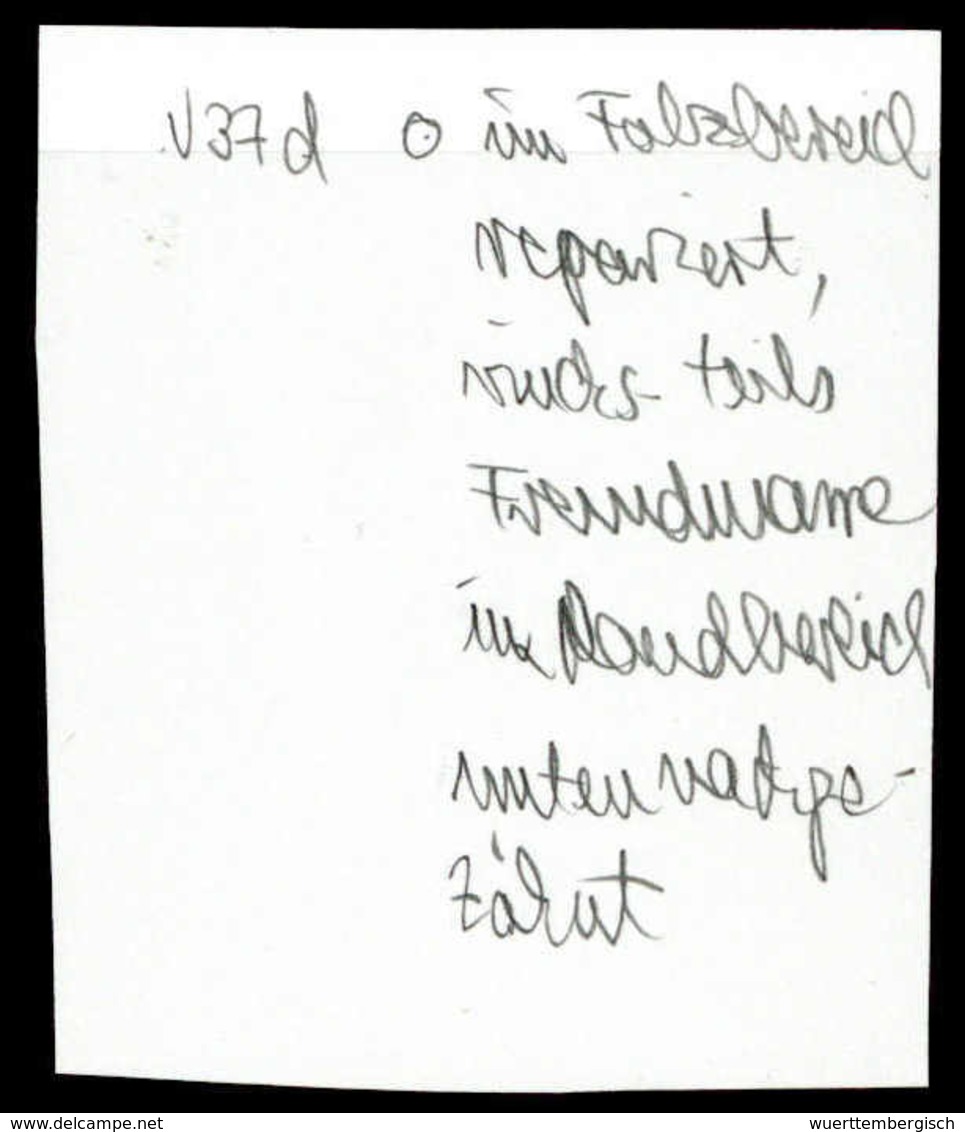 V37d o im Falzbereich
repariert,
rücks. teils
Fremdware
im Randbereich
unten nachge-
zähnt
www.delcampe.net
wuerttembergisch